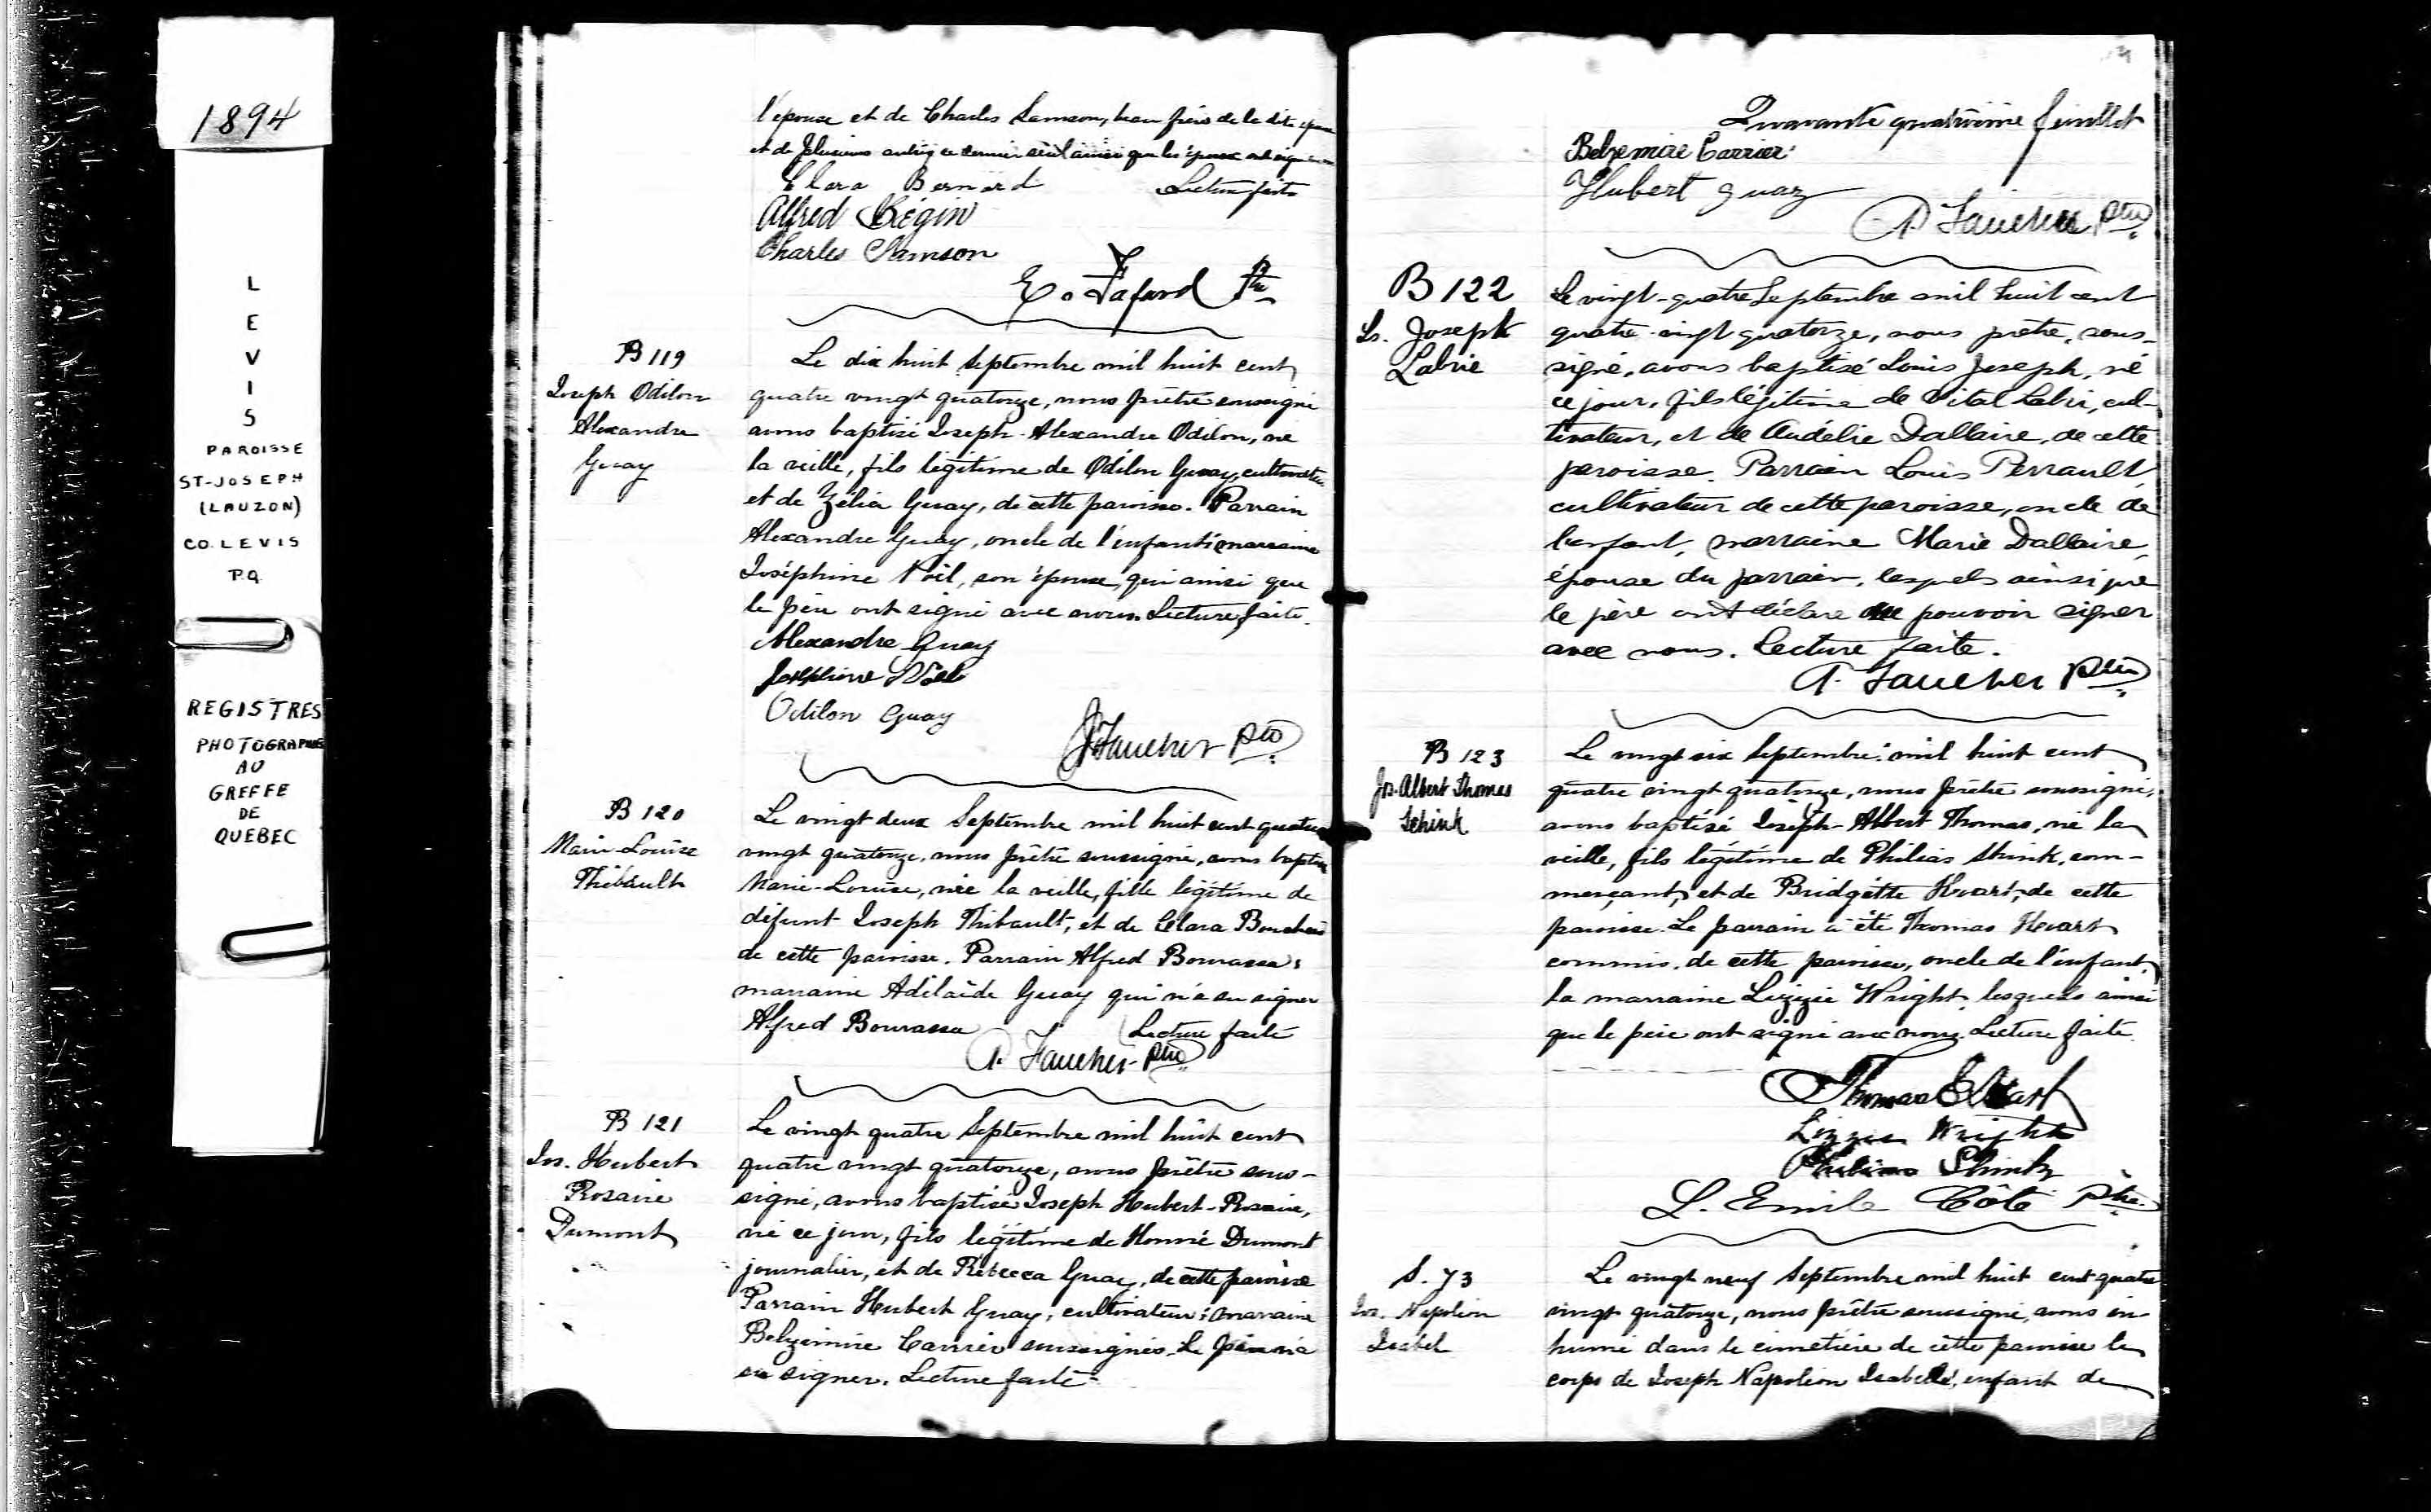 1894
L
E
V
I
S
PAROISSE
ST-JOSEPH
(LAUZON)
CO. LEVIS
P.Q.
REGISTRES
PHOTOGRAPHIÉS
AU
GREFFE
DE
QUEBEC
l'épouse et de Charles Samson, beau frère de la dite épouse
et de plusieurs autres ce dernier seul ainsi que les époux ont signé
Clara Bernard Lecture faite
Alfred Bégin
Charles Samson
E. Fafard Ptre
B 119
Joseph Odilon
Alexandre
Guay
Le dix huit Septembre mil huit cent
quatre vingt quatorze, nous prêtre soussigné
avons baptisé Joseph-Alexandre Odilon, né
la veille, fils légitime de Odilon Guay, cultivateur
et de Zélia Guay, de cette paroisse. Parrain
Alexandre Guay, oncle de l'enfant; marraine
Joséphine Noël, son épouse, qui ainsi que
le père ont signé avec nous. Lecture faite.
Alexandre Guay
Joséphine Noël
Odilon Guay
Faucher ptre
B 120
Marie-Louise
Thibault
Le vingt deux Septembre mil huit cent quatre
vingt quatorze, nous prêtre soussigné, avons baptisé
Marie-Louise, née la veille, fille légitime de
défunt Joseph Thibault, et de Clara
de cette paroisse. Parrain Alfred Bourassa;
marraine Adélaïde Guay qui n'a su signer
Alfred Bourassa Lecture faite
Faucher ptre
B 121
Jos. Hubert
Rosaire
Dumont
Le vingt quatre Septembre mil huit cent
quatre vingt quatorze, nous prêtre sous-
signé, avons baptisé Joseph Hubert-Rosaire,
né ce jour, fils légitime de Honoré Dumont
journalier, et de Rébecca Guay, de cette paroisse
Parrain Hubert Guay, cultivateur; marraine
Belzémire Carrier soussignés. Le père n'a
su signer. Lecture faite
Quarante quatrième feuillet
Belzemire Carrier
Hubert guay
Faucher ptre
B 122
Ls. Joseph
Labrie
Le vingt-quatre Septembre mil huit cent
quatre-vingt quatorze, nous prêtre, sous-
signé, avons baptisé Louis Joseph, né
ce jour, fils légitime de Vital Labrie, cul-
tivateur, et de Audélie Dallaire, de cette
paroisse. Parrain Louis Perrault,
cultivateur de cette paroisse, oncle de
l'enfant, marraine Marie Dallaire,
épouse du parrain, lesquels ainsi que
le père ont déclaré ne pouvoir signer
avec nous. Lecture faite.
Faucher ptre
B 123
Js. Albert Thomas
Schink
Le vingt six Septembre mil huit cent
quatre vingt quatorze, nous prêtre soussigné,
avons baptisé Joseph-Albert Thomas, né la
veille, fils légitime de Philias Shink, com-
merçant, et de Bridgitte, de cette
paroisse. Le parrain a été Thomas
commis, de cette paroisse, oncle de l'enfant,
la marraine Lizzie Wright, lesquels ainsi
que le père ont signé avec nous. Lecture faite.
Thomas
Lizzie Wright
Philias Shink
L. Emile Côté Ptre
S. 73
Jos. Napoléon
Isabel
Le vingt neuf Septembre mil huit cent quatre
vingt quatorze, nous prêtre soussigné, avons in-
humé dans le cimetière de cette paroisse le
corps de Joseph Napoléon Isabelle, enfant de